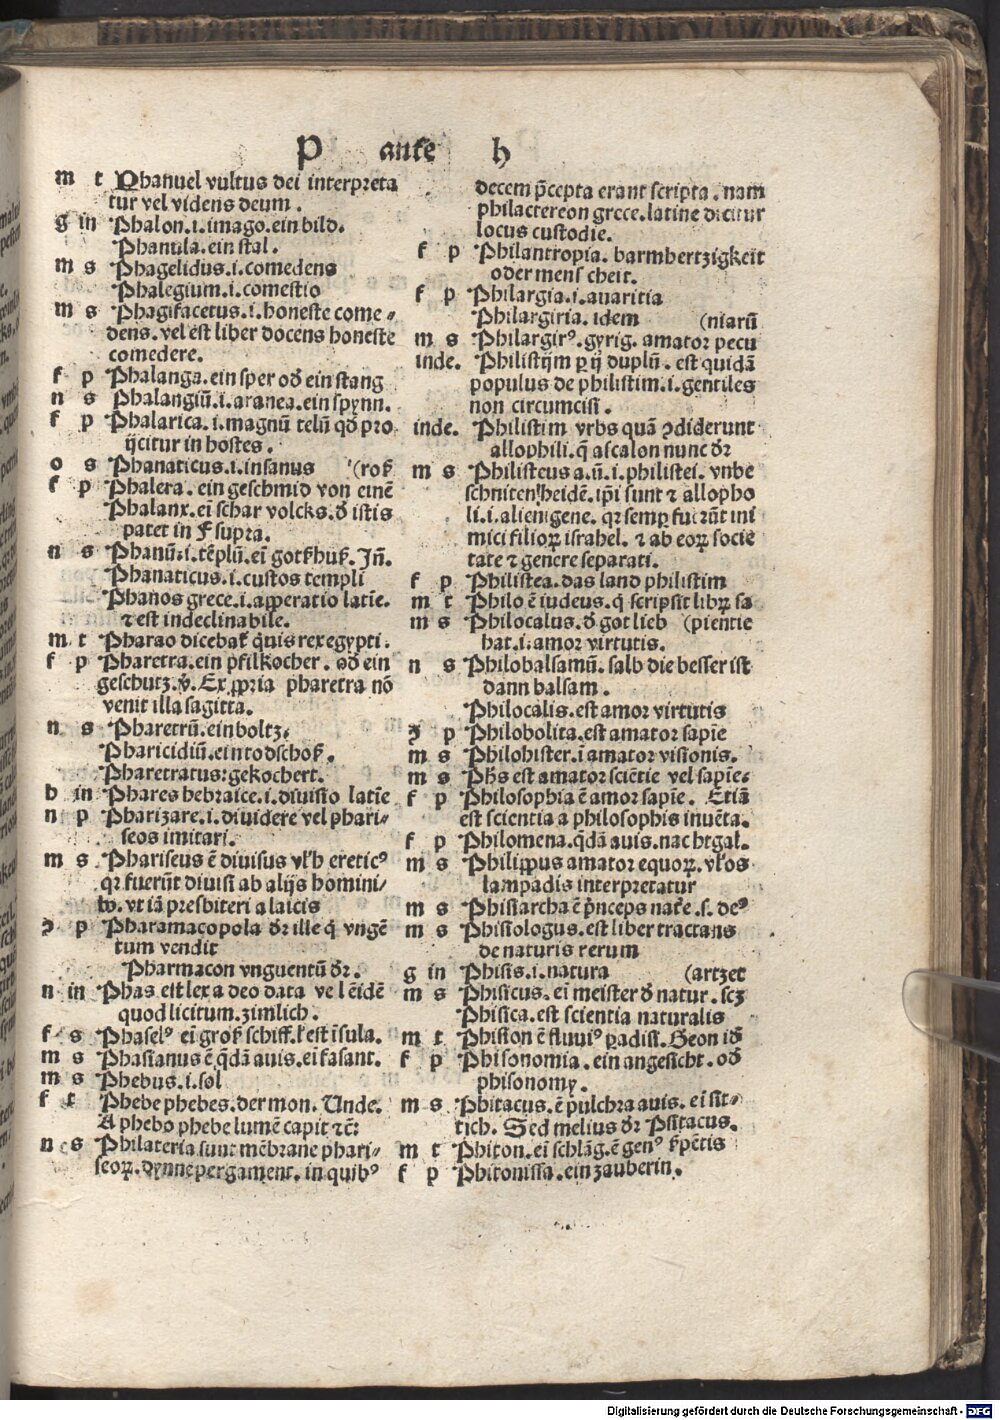 P ante h
m t Phanuel vultus dei interpreta
tur vel videns deum.
g in Phalon.i.imago.ein bild.
Phanula.ein stal.
m s Phagelidus.i.comedens
Phalegium.i.comestio
m s Phagifacetus.i.honeste come⸗
dens.vel est liber docens honeste
comedere.
f p Phalanga.ein sper od̄ ein stang
n s Phalangiū.i.aranea.ein spynn.
f p Phalarica.i.magnū telū qd̄ pro
ijcitur in hostes.
o s Phanaticus.i.insanus (roß
f p Phalera.ein geschmid von einē
Phalanx.eī schar volcks.d̄ istis
patet in F supra.
n s Phanū.i.tēplū.eī gotßhuß.Jn̄.
Phanaticus.i.custos templi
Phanos grece.i.apperatio latīe.
⁊ est indeclinabile.
m t Pharao dicebat̄ q̇uis rex egypti.
f p Pharetra.ein pfilkocher.od̄ ein
geschutz.v̇.Ex ꝓpria pharetra nō
venit illa sagitta.
n s Pharetrū.ein boltz.
Pharicidiū.ein todschoß.
Pharetratus:gekochert.
b in Phares hebraice.i.diuisio latīe
n p Pharizare.i.diuidere vel phari⸗
seos imitari.
m s Phariseus ē diuisus vl̄ h̄ eretic⁹
qꝛ fuerūt diuisi ab alijs homini⸗
b⁹.vt iā presbiteri a laicis
ꝯ p Pharamacopola dr̄ ille q̇ vngē
tum vendit
Pharmacon vnguentū dr̄.
n in Phas est lex a deo data vel ēidē
quod licitum.zimlich.
f s Phasel⁹ eī groß schiff.ł est īsula.
m s Phasianus ē q̄dā auis.eī fasant.
m s Phebus.i.sol
f t Phebe phebes.der mon.Unde.
A phebo phebe lumē capit ⁊c̄:
n s Philateria sunt mēbrane phari⸗
seoꝝ.dynne pergament.in quib⁹
decem p̄cepta erant scripta.nam
philactereon grece.latine dicitur
locus custodie.
f p Philantropia.barmhertzigkeit
oder mensscheit.
f p Philargia.i.auaritia
Philargiria.idem (niarū
m s Philargir⁹.gyrig.amator pecu
inde. Philistijm ꝑ ij duplū.est quidā
populus de philistim.i.gentiles
non circumcisi.
inde. Philistim vrbs quā ꝯdiderunt
allophili.q̄ ascalon nunc dr̄
m s Philisteus a.ū.i.philistei.vnbe
schniten heidē.ip̄i sunt ⁊ allopho
li.i.alienigene.qꝛ semꝑ fuerūt ini
mici filioꝝ israhel.⁊ ab eoꝝ socie
tate ⁊ genere separati.
f p Philistea.das land philistim
m t Philo ē iudeus.q̇ scripsit libꝝ sa
m s Philocalus.d̄ got lieb (pientie
hat.i.amor virtutis.
n s Philobalsamū.salb die besser ist
dann balsam.
Philocalis.est amor virtutis
ꝯ p Philobolita.est amator sapīe
m s Philohister.ī amator visionis.
m s Ph̄s est amator sciētie vel sapīe.
f p Philosophia ē amor sapīe. Etiā
est scientia a philosophis inuēta.
f p Philomena.q̄dā auis.nachtgal.
m s Philippus amator equoꝝ.vł os
lampadis interpretatur
m s Phisiarcha ē p̄nceps nat̄e.s.de⁹
m s Phisiologus.est liber tractans
de naturis rerum
g in Phisis.i.natura (artzet
m s Phisicus.eī meister d̄ natur.scꝫ
Phisica.est scientia naturalis
m t Phision ē fluui⁹ ꝑadisi.Geon id̄
f p Phisonomia.ein angesicht.od̄
phisonomy.
m s Phitacus.ē pulchra auis.eī sit⸗
tich. Sed melius dr̄ Psitacus.
m t Phiton.eī schlāg.ē gen⁹ ẜpētis
f p Phitonissa.ein zauberin.
Digitalisierung gefördert durch die Deutsche Forschungsgemeinschaft - DFG